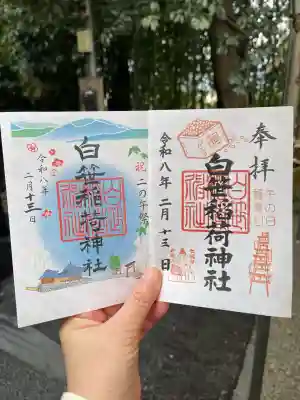 奉拝
白笹稲荷神社
令和八年二月十三日
祝二の午祭
白笹稲荷神社
令和八年
二月十三日